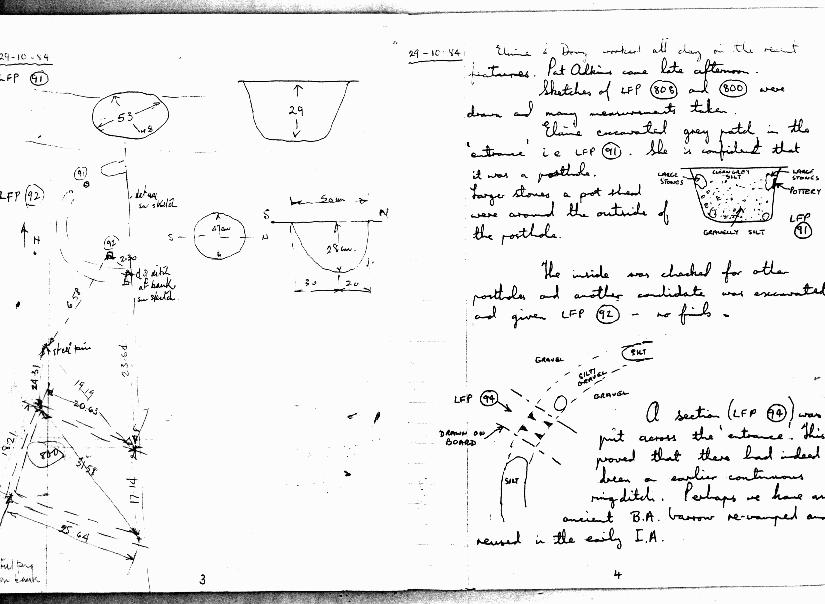 29-10-84
LFP 91
53
29
91
LFP 92
N
S
47cm
N
S
50cm
N
28cm
30
20
92
2.30
6.58
steel pin
23.64
24.31
19.19
20.63
18.21
800
31.58
17.14
25.64
3
29-10-84
Elaine & Doug worked all day on the
features. Pat Adkins came late afternoon.
Sketches of LFP 808 and 800 were
drawn and many measurements taken.
Elaine excavated grey patch in the
'entrance' i.e LFP 91. She is confident that
it was a posthole.
Large stones a pot sherd
were around the outside of
the posthole.
LARGE STONES
CLEAN GREY SILT
LARGE STONES
POTTERY
GRAVELLY SILT
LFP 91
The inside was checked for other
postholes and another candidate was excavated
and given LFP 92 - no finds.
GRAVEL
SILT
SILTY GRAVEL
GRAVEL
LFP 94
DRAWN ON BOARD
SILT
A section (LFP 94) was
put across the 'entrance'. This
proved that there had indeed
been a earlier continuous
ringditch. Perhaps we have an
ancient B.A. barrow re-vamped and
reused in the early I.A.
4